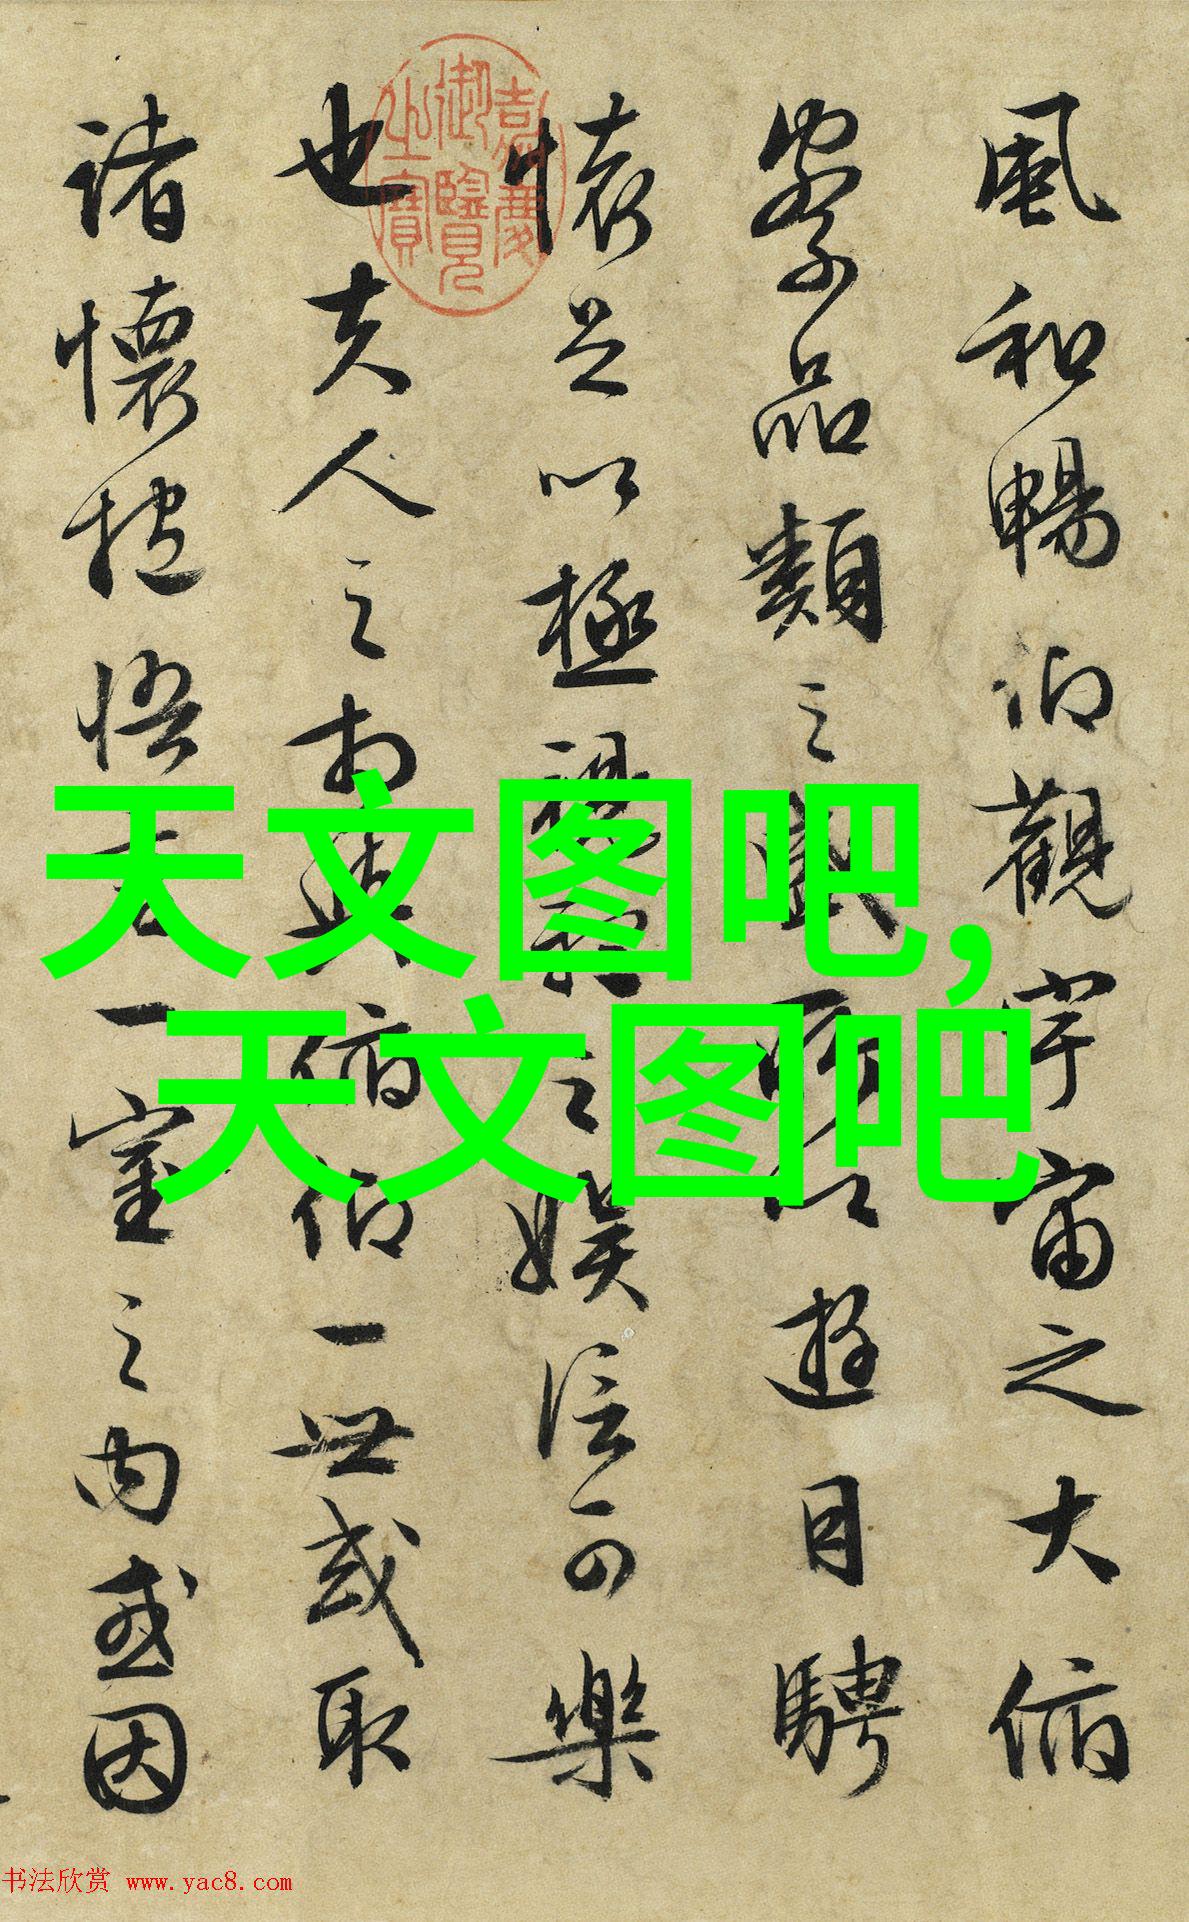 風和暢仰觀宇宙之大俯
察品類之盛所以遊目騁
懷足以極視聽之娛信可樂
也夫人之相與俯仰一世或取
諸懷抱悟言一室之內或因
嘉慶
御覽
之寶
天文图吧,
天文图吧
书法欣赏 www.yac8.com